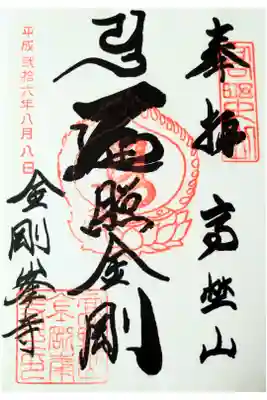 奉拝 高野山
遍照金剛
金剛峯寺
平成弐拾六年八月八日